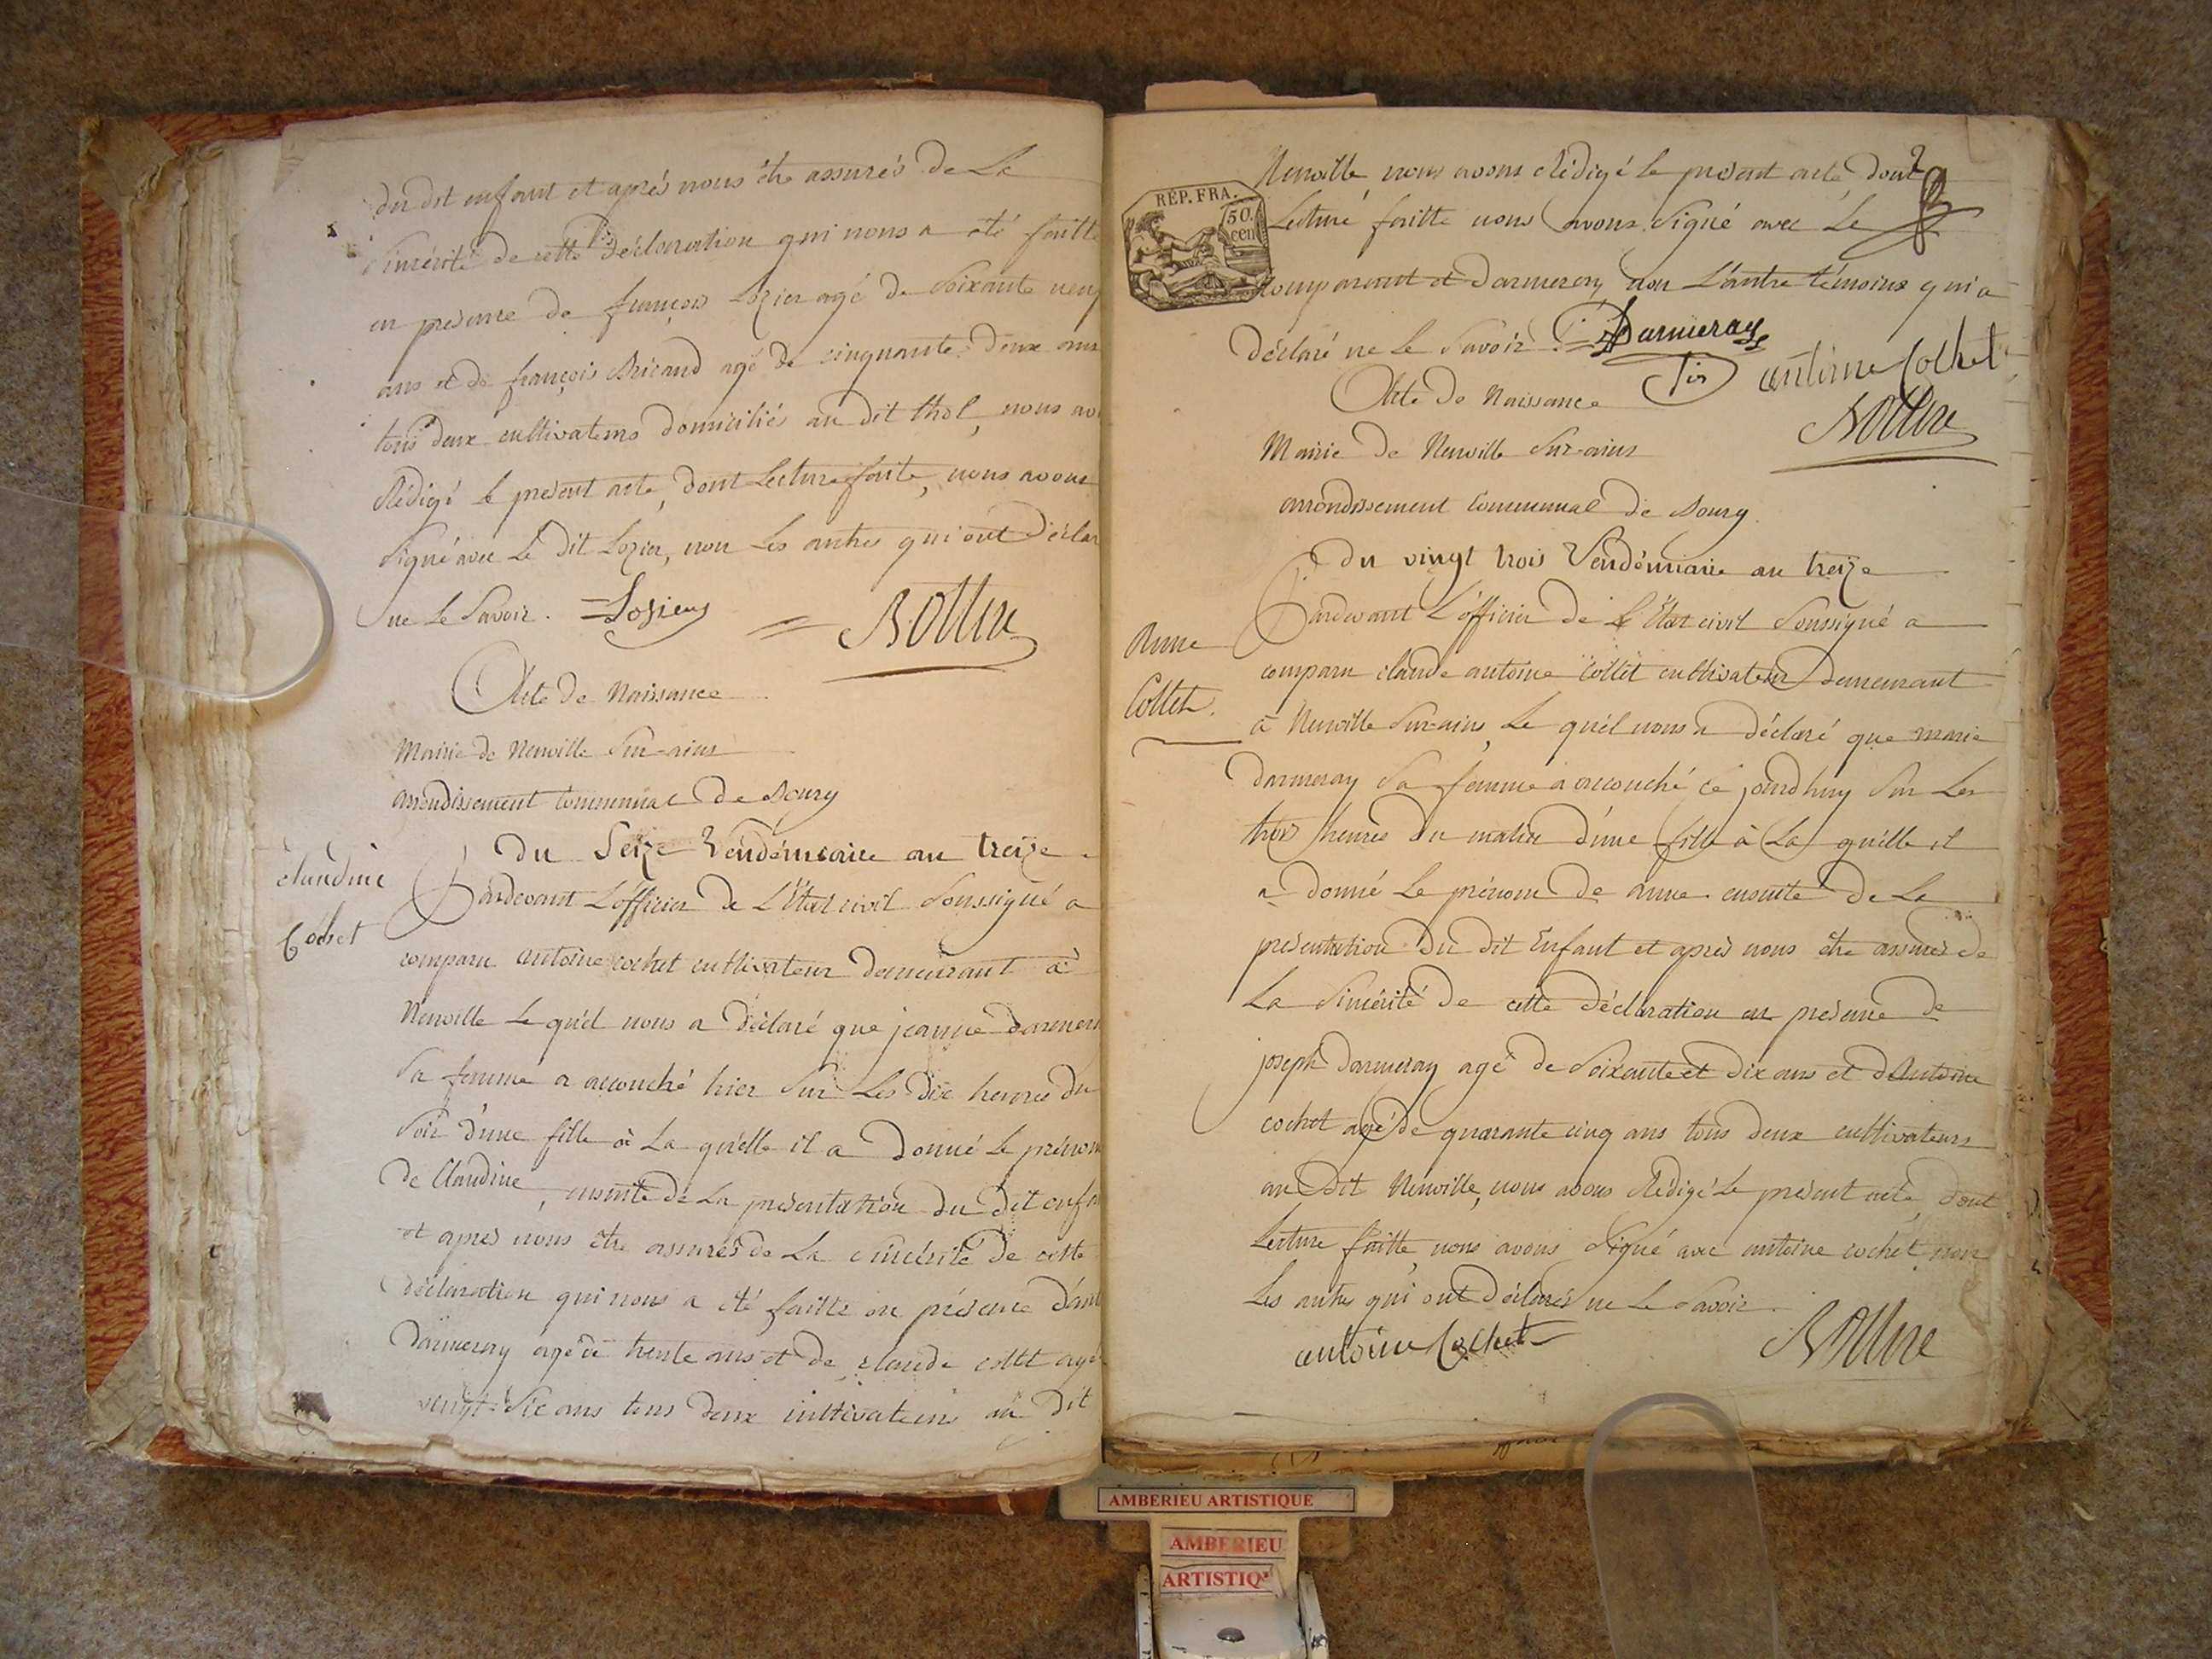 du dit enfant et aprés nous être assurés de La
sincérité de cette déclaration qui nous a été faitte
en présence de françois Lozier agé de soixante neuf
ans et de françois Bricand agé de cinquante deux ans
tous deux cultivateurs domiciliés au dit thol, nous av
Rédigé le présent acte, dont Lecture faite, nous avons
signé avec Le dit Lozier, non Les autres qui ont déclar
ne Le savoir. Lozier
Acte de Naissance
Mairie de Neuville sur-ains
arrondissement Communal de Bourg
Du seize Vendémiaire an treize
claudine
Cochet
Pardevant L'officier de L'Etat civil soussigné a
comparu antoine cochet cultivateur demeurant à
Neuville Le quel nous a déclaré que jeanne darmera
sa femme a accouché hier sur Les dix heures du
soir d'une fille à La quelle il a donné Le prénom
de Claudine, ensuite de La présentation du dit enfa
et aprés nous être assurés de La sincérité de cette
déclaration qui nous a été faitte en présence d'ant
Darmeray agé de trente ans et de claude collet agé
vingt six ans tous deux cultivateurs au dit
REP. FRA.
50.
cen
Neuville nous avons Rédigé le présent acte dont
Lecture faitte nous avons signé avec Le
comparant et darmeray non L'autre témoins qui a
déclaré ne Le savoir. Darmeray
antoine Cochet
Acte de Naissance
Mairie de Neuville sur-ains
arrondissement Communal de Bourg
Du vingt trois Vendémiaire an treize
Anne
Collet.
Pardevant L'officier de L'Etat civil soussigné a
comparu claude antoine collet cultivateur demeurant
à Neuville sur-ains, Le quel nous a déclaré que marie
darmeray sa femme a accouché ce jourdhuy sur Les
trois heures du matin d'une fille à La quelle il
a donné Le prénom de anne. ensuite de La
présentation du dit Enfant et aprés nous être assurés de
La sincérité de cette déclaration en présence de
joseph darmeray agé de soixante et dix ans et d'Antoine
cochet agé de quarante cinq ans tous deux cultivateurs
au dit Neuville, nous avons Rédigé Le présent acte, dont
Lecture faitte, nous avons signé avec antoine cochet, non
Les autres qui ont déclarés ne Le savoir.
antoine Cochet
AMBERIEU ARTISTIQUE
AMBERIEU
ARTISTIQ